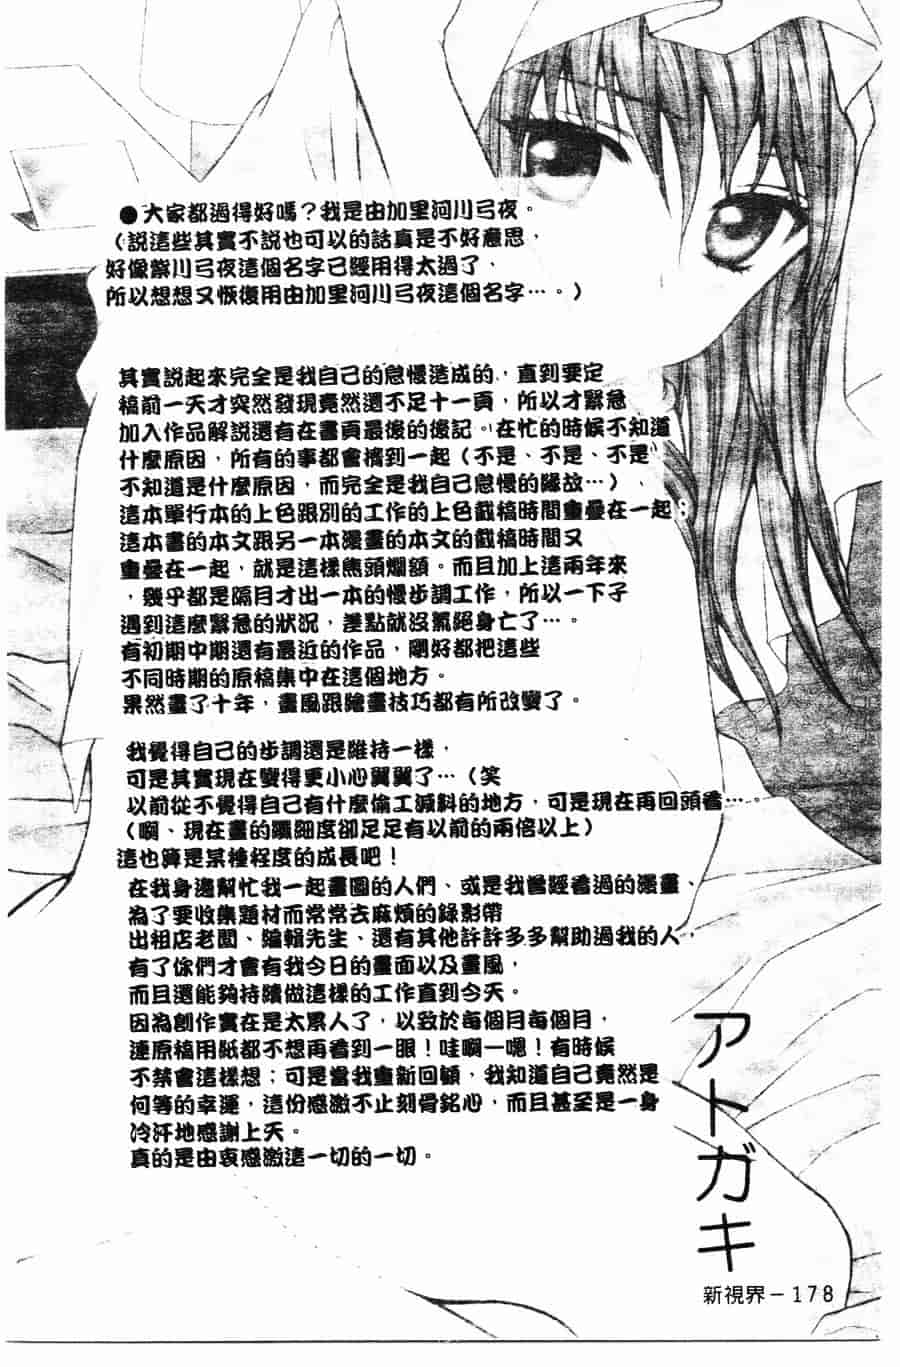 ●大家都過得好嗎？我是由加里河川弓夜。
（說這些其實不說也可以的話真是不好意思，
好像彿川弓夜這個名字已經用得太過了，
所以想想又恢復用由加里河川弓夜這個名字…。）
其實說起來完全是我自己的怠慢造成的，直到要定
稿前一天才突然發現竟然還不足十一頁，所以才緊急
加入作品解說還有在書頁最後的後記。在忙的時候不知道
什麼原因，所有的事都會擠到一起（不是、不是、不是
不知道是什麼原因，而完全是我自己怠慢的緣故…）、
這本單行本的上色跟別的工作的上色截稿時間重疊在一起；
這本書的本文跟另一本漫畫的本文的截稿時間又
重疊在一起，就是這樣焦頭爛額。而且加上這兩年來
，幾乎都是隔月才出一本的慢步調工作，所以一下子
遇到這麼緊急的狀況，差點就沒氣絕身亡了…。
有初期中期還有最近的作品，剛好都把這些
不同時期的原稿集中在這個地方。
果然畫了十年，畫風跟繪畫技巧都有所改變了。
我覺得自己的步調還是維持一樣，
可是其實現在變得更小心翼翼了…（笑
以前從不覺得自己有什麼偷工減料的地方，可是現在再回頭看…。
（啊、現在畫的纖細度卻足足有以前的兩倍以上）
這也算是某種程度的成長吧！
在我身邊幫忙我一起畫圖的人們、或是我曾經看過的漫畫、
為了要收集題材而常常去麻煩的錄影帶
出租店老闆、編輯先生、還有其他許許多多幫助過我的人，
有了你們才會有我今日的畫面以及畫風，
而且還能夠持續做這樣的工作直到今天。
因為創作實在是太累人了，以致於每個月每個月，
連原稿用紙都不想再看到一眼！哇啊—嗯！有時候
不禁會這樣想；可是當我重新回顧，我知道自己竟然是
何等的幸運，這份感激不止刻骨銘心，而且甚至是一身
冷汗地感謝上天。
真的是由衷感激這一切的一切。
アトガキ
新視界－178